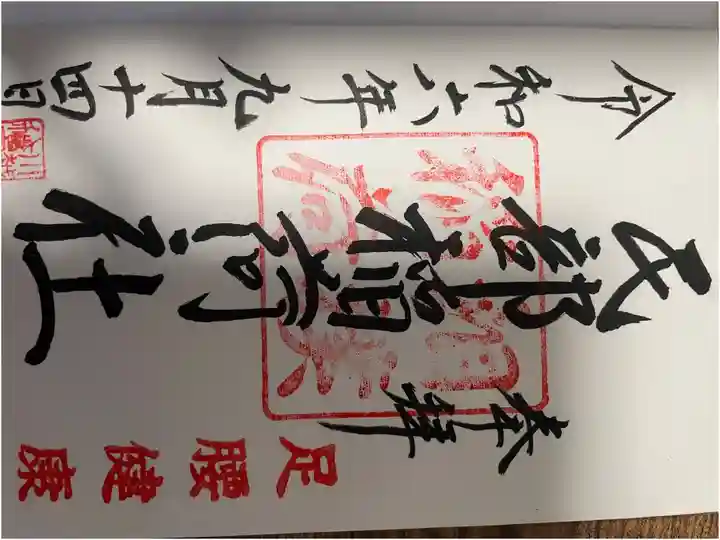 奉拝
民部稲荷社
令和六年九月十四日
足腰健康